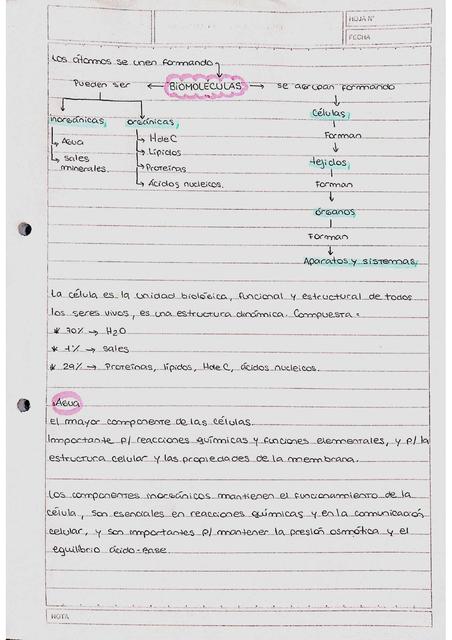 HOJA N°
FECHA
Los átomos se unen formando
Pueden ser ← BIOMOLÉCULAS → se agrupan formando
inorgánicas, orgánicas, Células,
→ Agua → H de C Forman
→ sales minerales. → Lípidos Tejidos,
→ Proteínas Forman
→ Ácidos nucleicos. órganos
Forman
Aparatos y sistemas,
La célula es la unidad biológica, funcional y estructural de todos
los seres vivos, es una estructura dinámica. Compuesta:
* 70% → H2O
* 1% → sales
* 29% → Proteínas, lípidos, H de C, ácidos nucleicos.
Agua
El mayor componente de las células.
Importante p/ reacciones químicas y funciones elementales, y p/ la
estructura celular y las propiedades de la membrana.
Los componentes inorgánicos mantienen el funcionamiento de la
célula, son esenciales en reacciones químicas y en la comunicación
celular, y son importantes p/ mantener la presión osmótica y el
equilibrio ácido-base.
NOTA